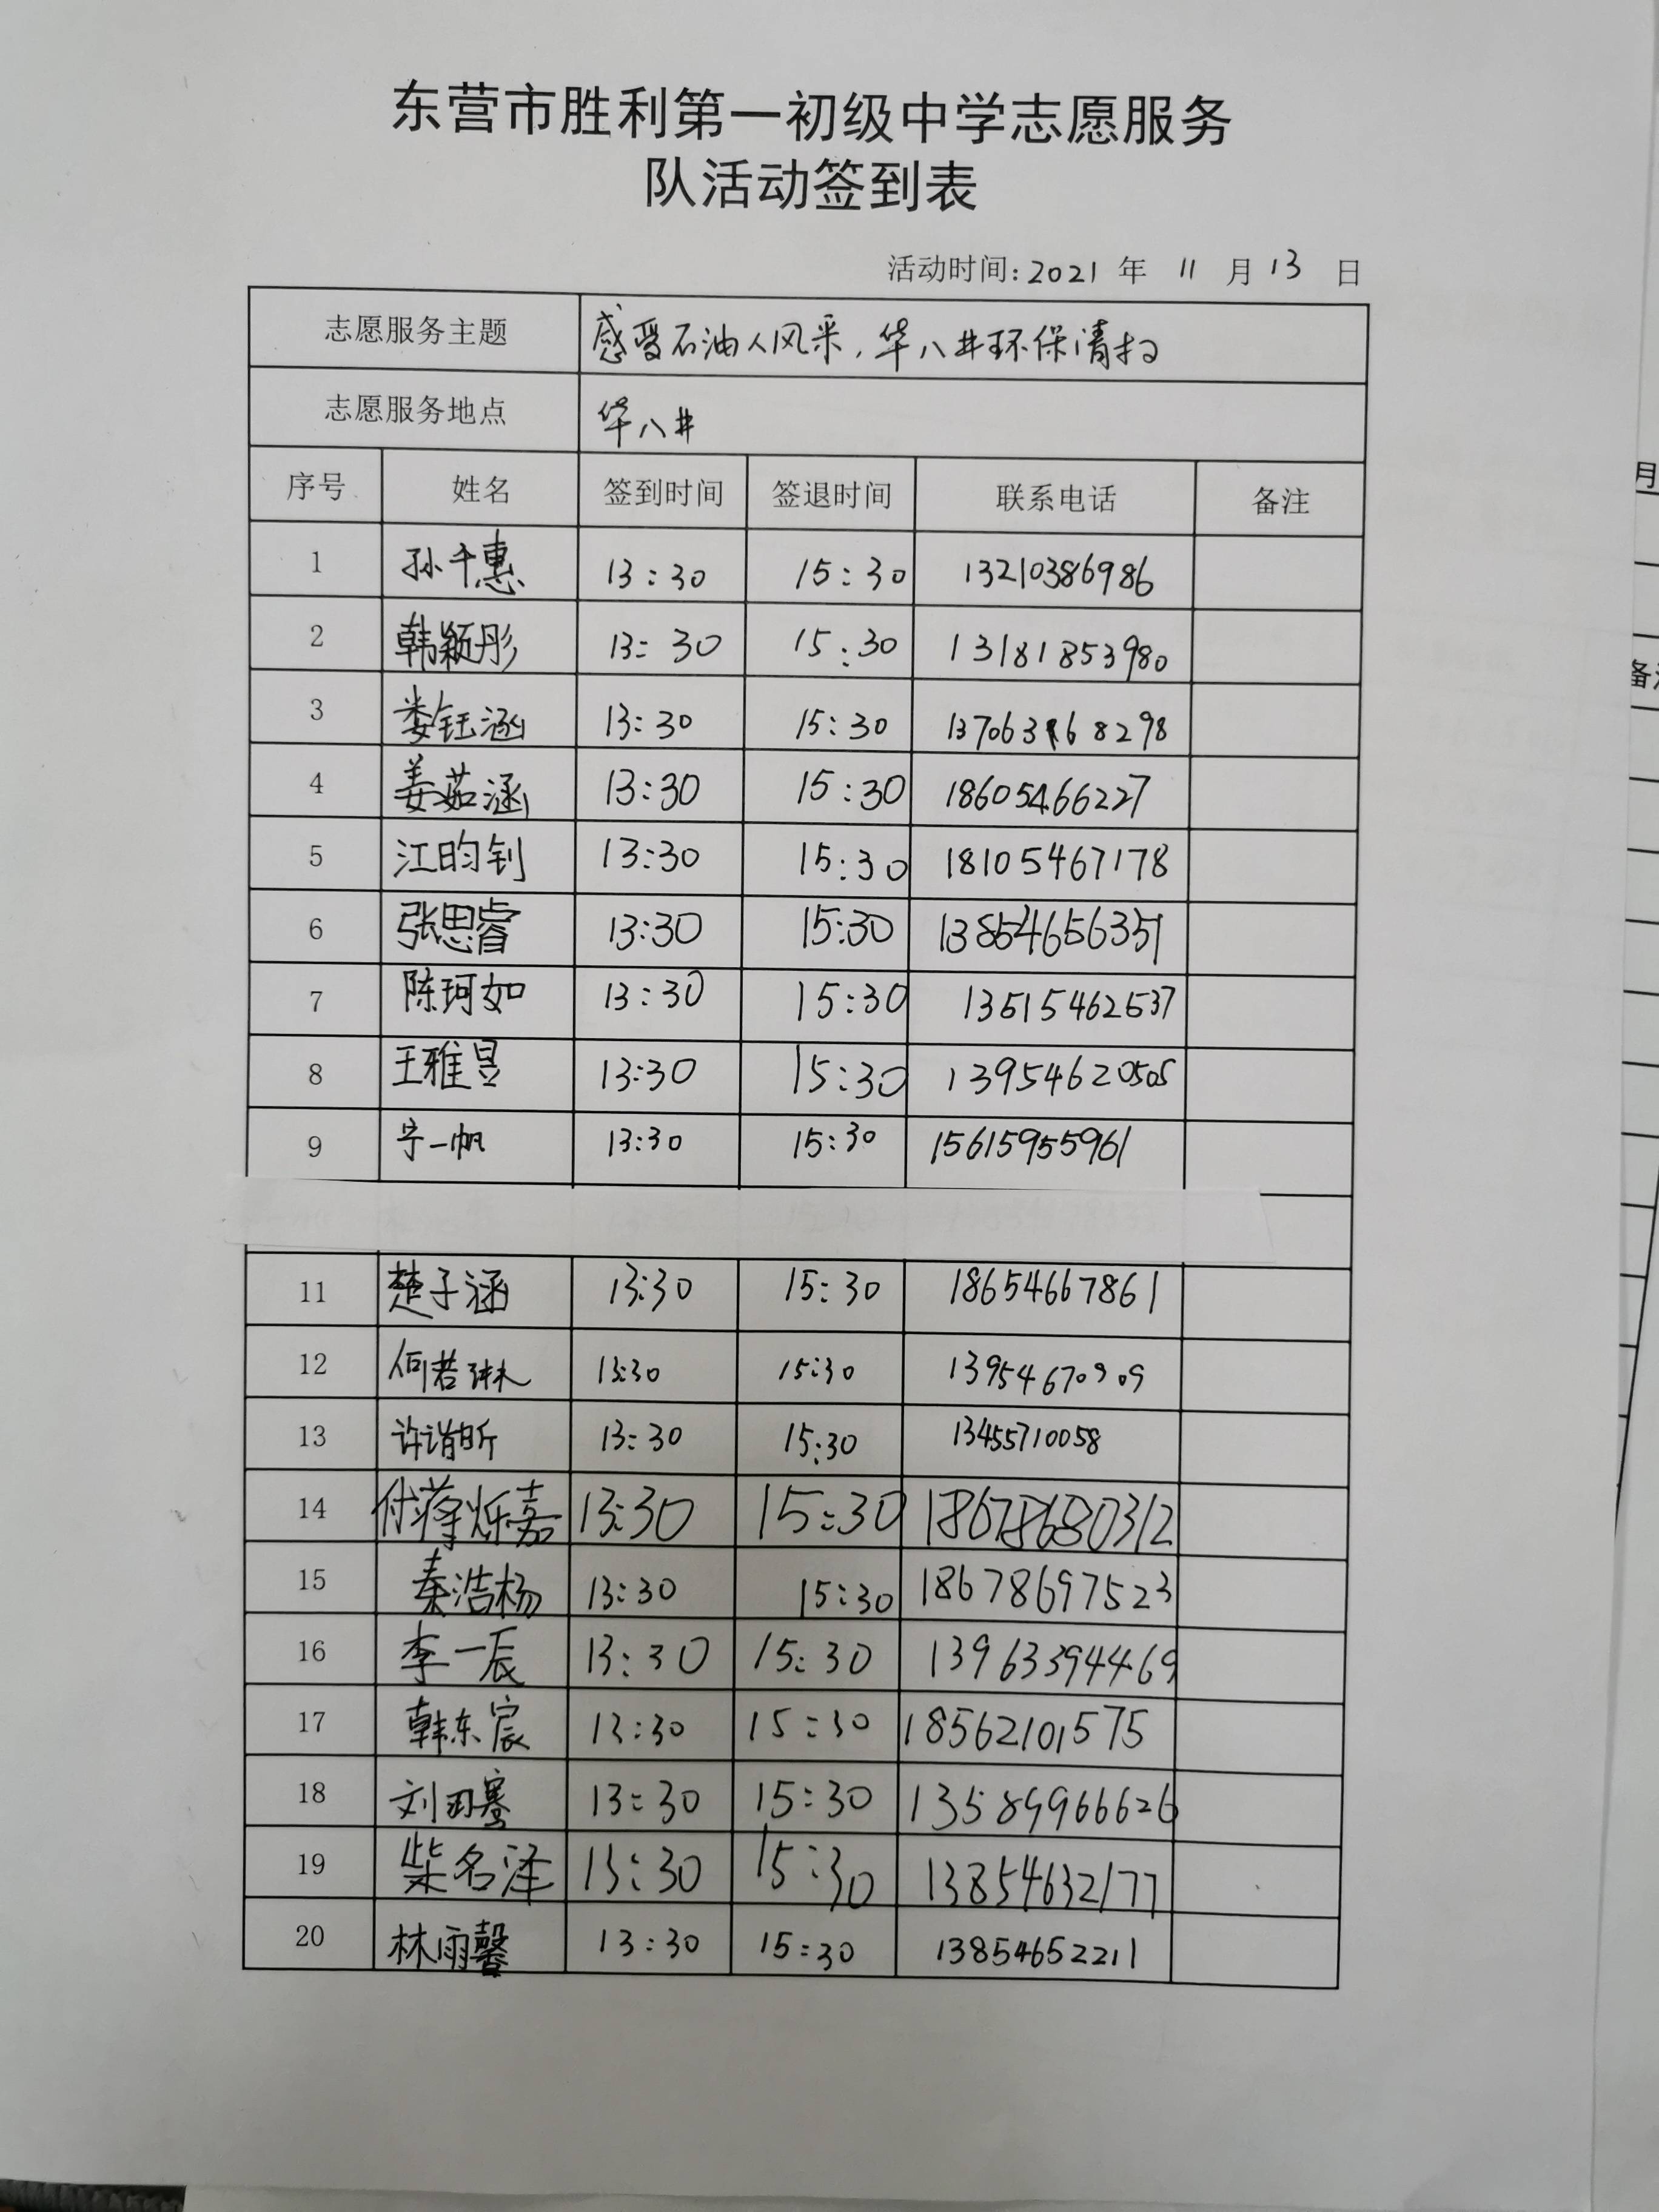 东营市胜利第一初级中学志愿服务
队活动签到表
活动时间:2021 年 11 月 13 日
志愿服务主题 感受石油人风采,华八井环保清扫
志愿服务地点 华八井
序号 姓名 签到时间 签退时间 联系电话 备注
1 孙千惠 13:30 15:30 13210386986
2 韩颖彤 13:30 15:30 13181853980
3 娄钰涵 13:30 15:30
4 姜茹涵 13:30 15:30 18605466227
5 江昀钊 13:30 15:30 18105467178
6 张思睿 13:30 15:30 13854656351
7 陈珂如 13:30 15:30 13515462537
8 王雅昱 13:30 15:30 13954620505
9 宁一帆 13:30 15:30 15615955961
11 楚子涵 13:30 15:30 18654667861
12 何若琳 13:30 15:30 13954670909
13 13:30 15:30 13455710058
14 付蒋烁嘉 13:30 15:30 18678680312
15 秦浩杨 13:30 15:30 18678697523
16 李一辰 13:30 15:30 13963394469
17 韩东宸 13:30 15:30 18562101575
18 13:30 15:30 13589966626
19 柴名泽 13:30 15:30 13854632177
20 林雨馨 13:30 15:30 13854652211
月
备